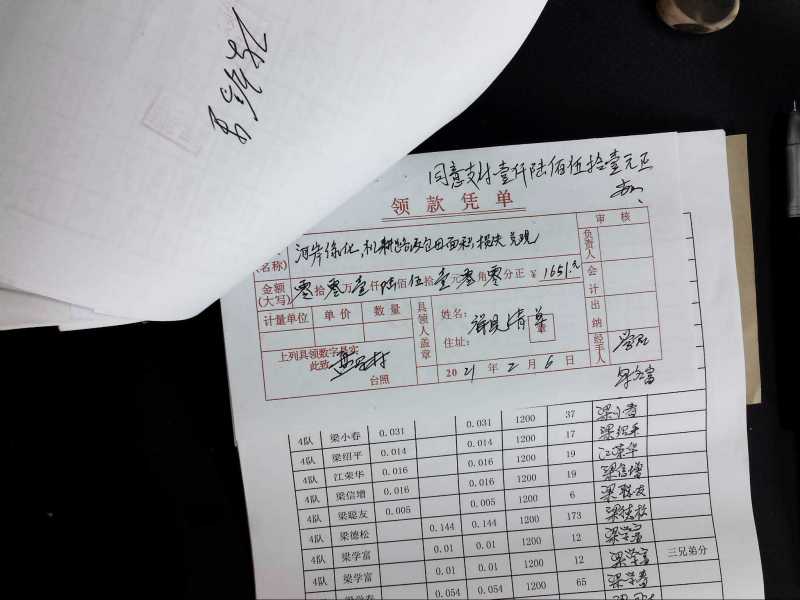 同意支付壹仟陆佰伍拾壹元正
领款凭单
审 核
(名称) 河岸绿化,机耕路及包田面积,损失兑现
负责人
金额(大写) 零拾零万壹仟陆佰伍拾壹元零角零分正 ¥ 1651.元
会计
计量单位 单价 数量
具领人盖章
姓名: 详见清单
住址:
出纳
上列具领数字是实
此致
台照
2021年2月6日
经手人
4队 梁小春 0.031 0.031 1200 37 梁小春
4队 梁绍平 0.014 0.014 1200 17 梁绍平
4队 江荣华 0.016 0.016 1200 19 江荣华
4队 梁信增 0.016 0.016 1200 19 梁信增
4队 梁聪友 0.005 0.005 1200 6 梁聪友
4队 梁德松 0.144 0.144 1200 173 梁德松
4队 梁学富 0.01 0.01 1200 12 梁学富
4队 梁学富 0.01 0.01 1200 12 梁学富 三兄弟分
0.054 0.054 1200 65